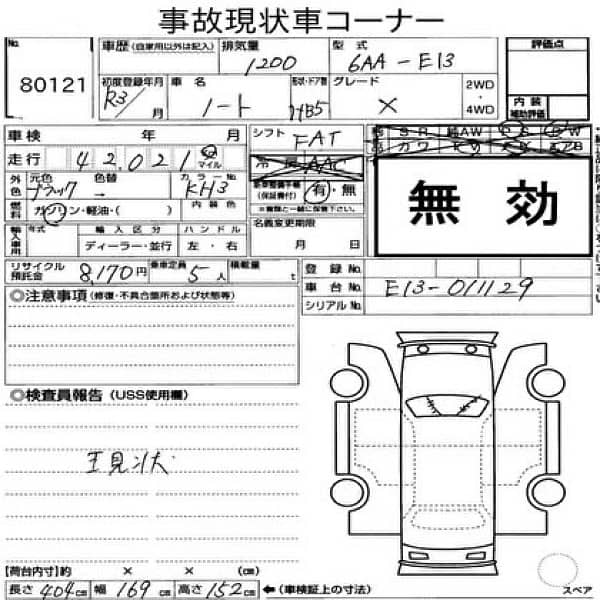 事故現状車コーナー
No. 80121
車歴 (自家用以外は記入) 排気量 1200 型式 6AA-E13 評価点
初度登録年月 R3/ 月 車名 ノート 形状・ドア数 H/B5 グレード X 2WD ・ 4WD 内装補助評価
車検 年 月 シフト FAT SR 純AW PS PW
走行 42,021 km マイル 冷房 AAC カワ エアB
外色 元色 ブラック 色替 → カラーNo. KH3 新車整備手帳(保証書付) 有・無 無効
燃料 ガソリン・軽油・( ) 内装色 ※種類と一緒に保管して下さい
輸入車用 年式 輸入区分 ディーラー・並行 ハンドル 左・右 名義変更期限 月 日
リサイクル預託金 8,170円 乗車定員 5人 積載量 t 登録No.
車台No. E13-011129
シリアルNo.
◎注意事項(修復・不具合箇所および状態等)
◎検査員報告(USS使用欄)
現状
【荷台内寸】約 × × (cm)
長さ 404cm 幅 169cm 高さ 152cm ←(車検証上の寸法) スペア